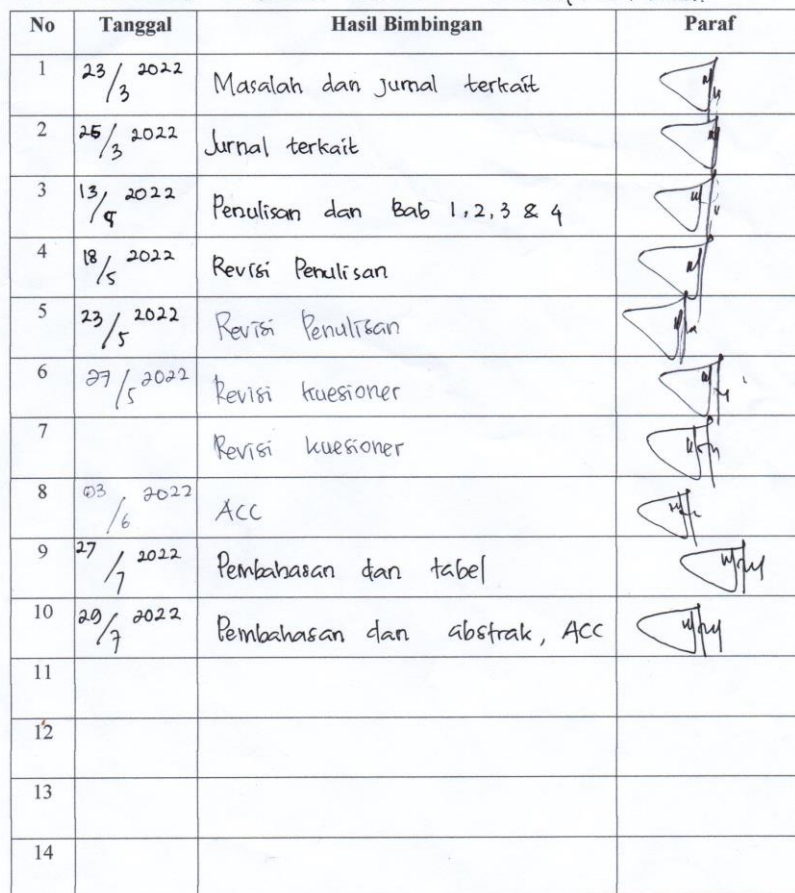 No Tanggal Hasil Bimbingan Paraf
1 23/3 2022 Masalah dan Jurnal terkait
2 25/3 2022 Jurnal terkait
3 13/ 2022 Penulisan dan Bab 1, 2, 3 & 4
4 18/5 2022 Revisi Penulisan
5 23/5 2022 Revisi Penulisan
6 27/5 2022 Revisi kuesioner
7 Revisi kuesioner
8 03/6 2022 ACC
9 27/7 2022 Pembahasan dan tabel
10 29/7 2022 Pembahasan dan abstrak, ACC
11
12
13
14